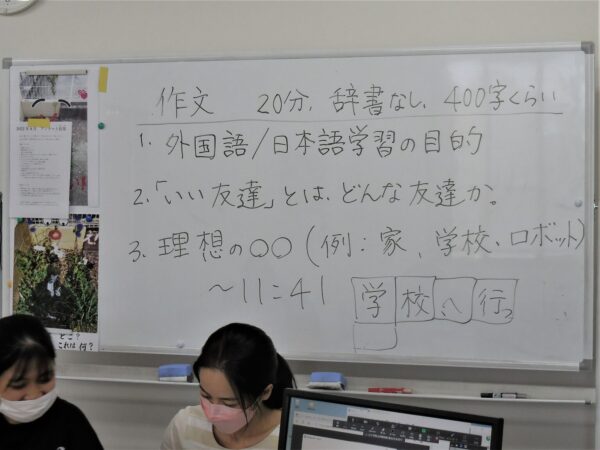 作文 20分、辞書なし、400字くらい
1. 外国語/日本語学習の目的
2.「いい友達」とは、どんな友達か。
3. 理想の○○(例：家、学校、ロボット)
～11:41
学校へ行っ
どこ？
これは何？